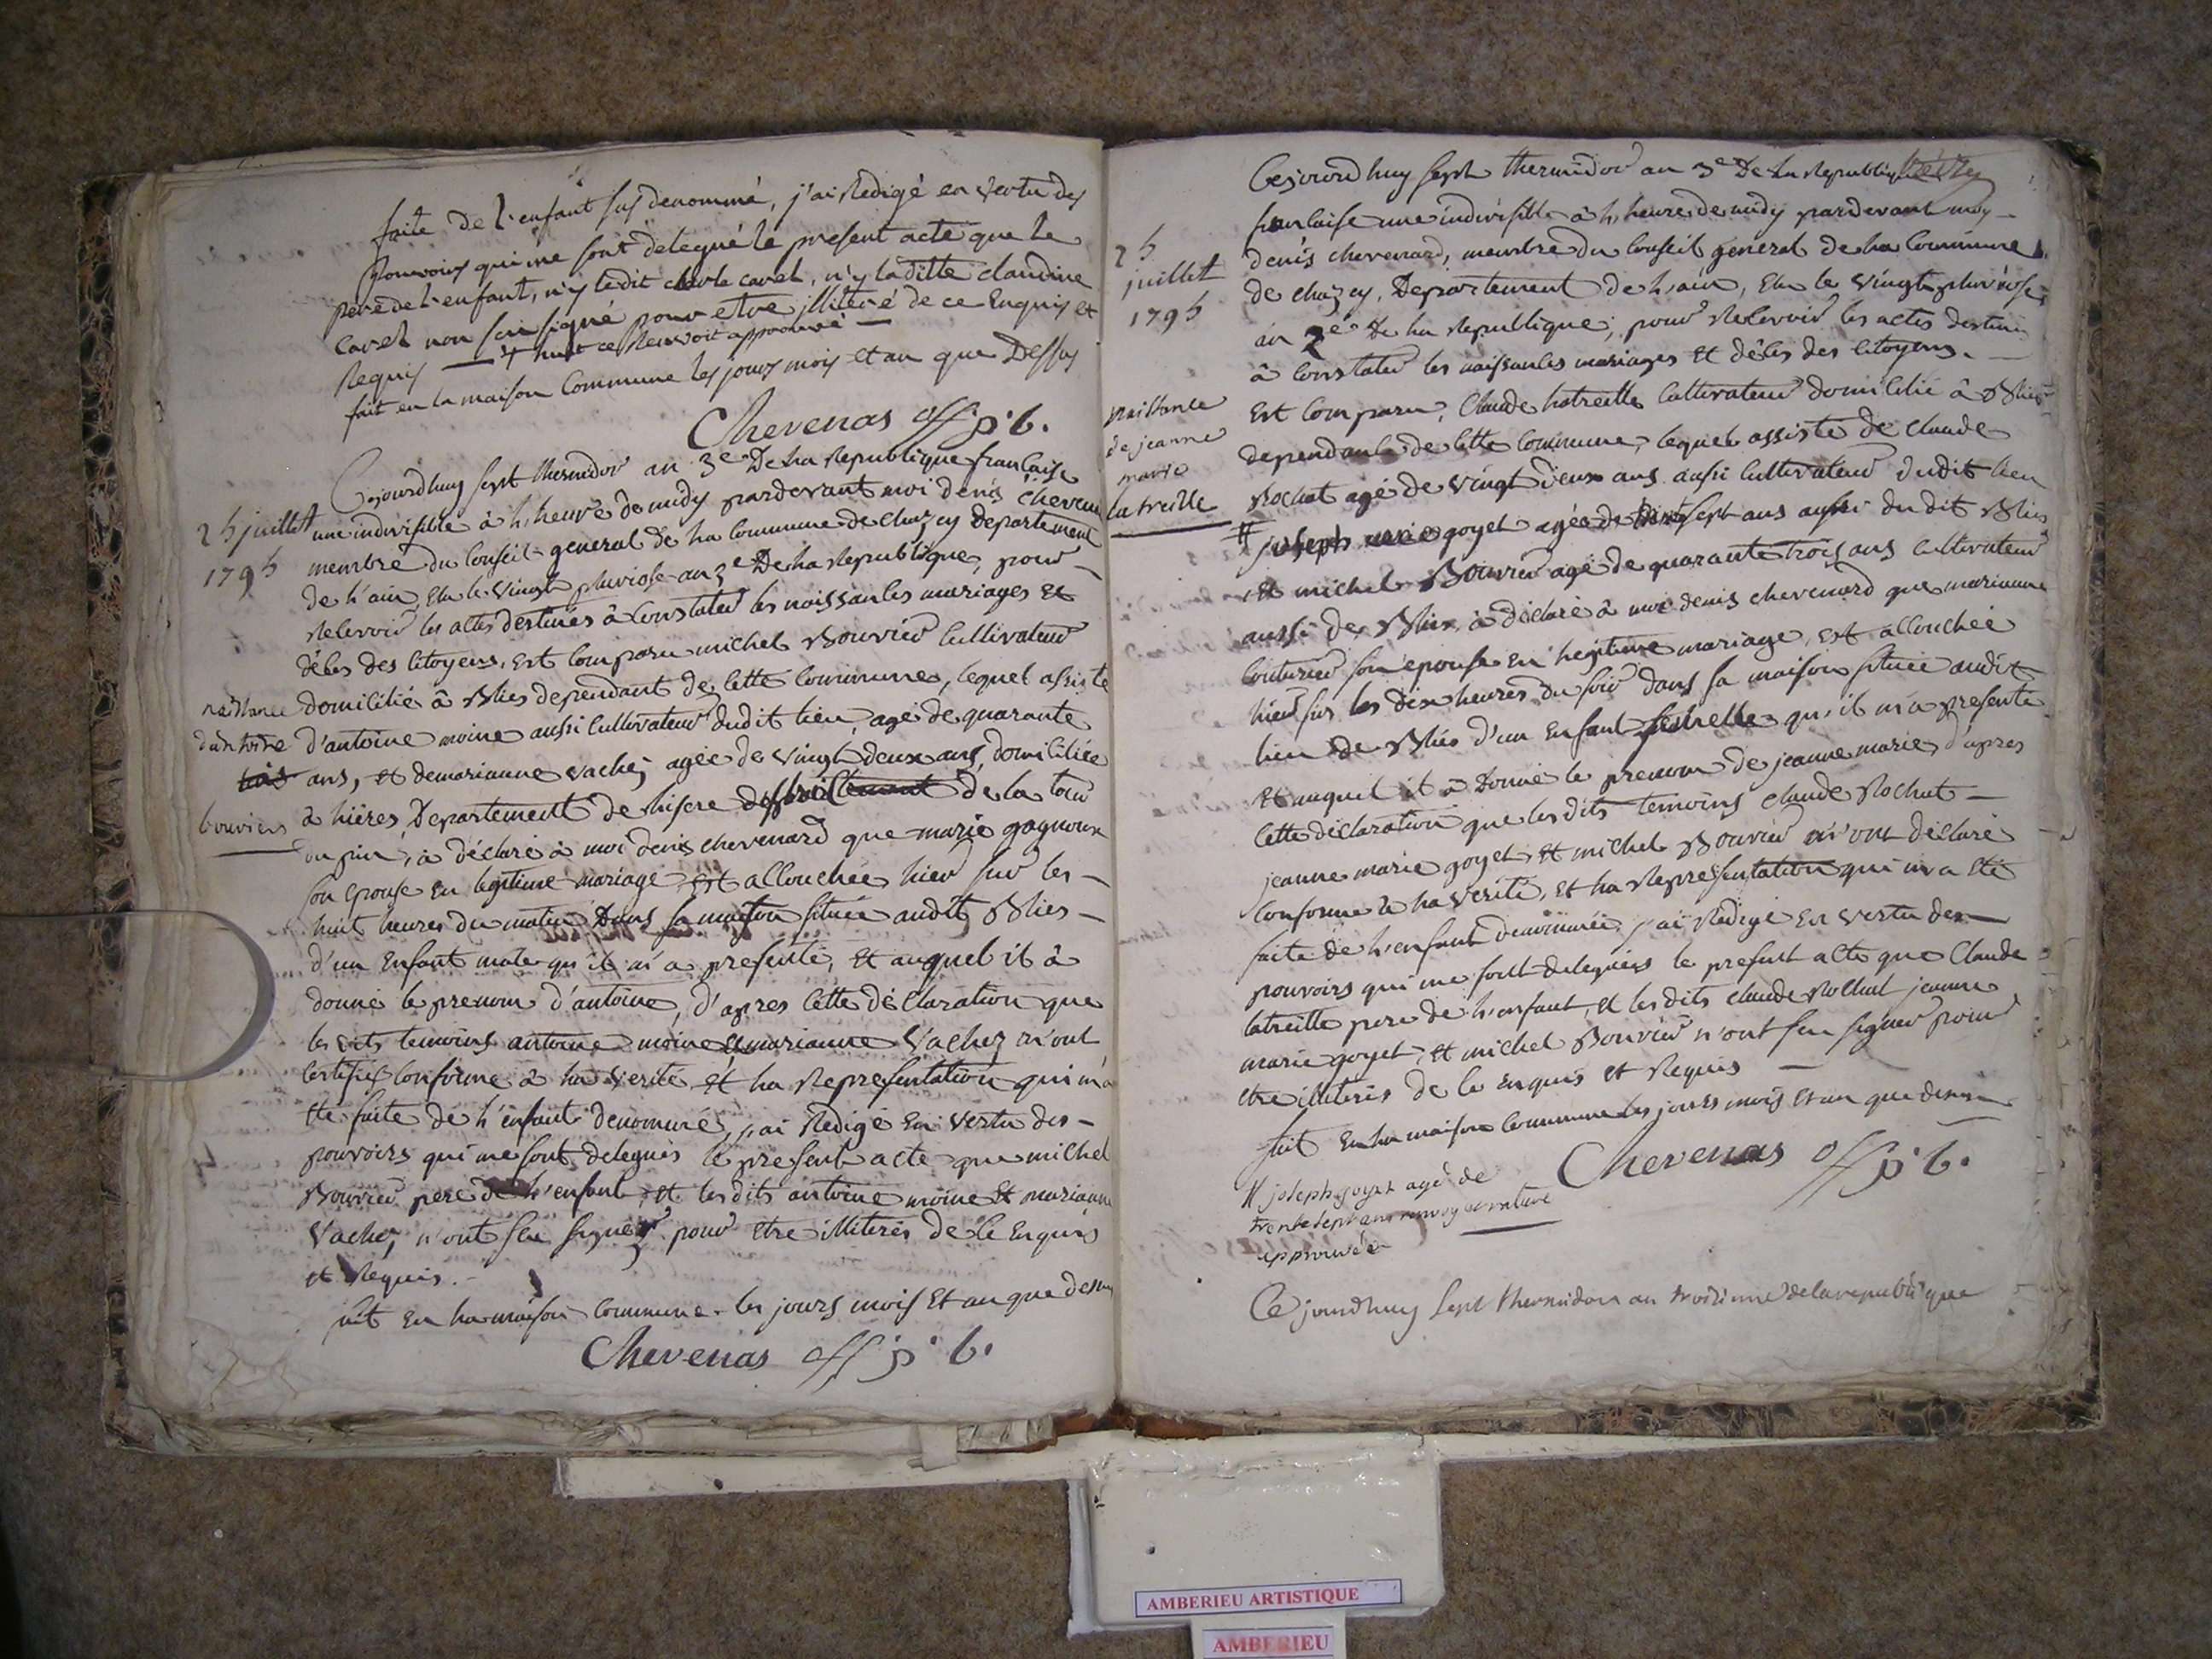 faite de l'enfant sus denommé, j'ai Redigé en vertu des
pouvoirs qui me sont delegué le present acte que le
pere de l'enfant, n'y ledit cavet, n'y laditte claudine
cavet non signé pour etre illiteré de ce Enquis et
Requis — nuit ce Renvoit approuvé —
fait en la maison Commune les jours mois et an que Dessus
Chevenas off p. b.
Cejourdhuy sept thermidor an 3e De la Republique francaise
une indivisible à h. heure de midy pardevant moi denis
membre du Conseil general de la commune de chazey Departement
de l'ain, Elu le vingt pluviose an 2e De la Republique, pour
Recevoir les actes destinés à Constater les naissances mariages et
décès des Citoyens, est comparu michel Bouvier Cultivateur
domicilié à Blies dependant de cette commune, lequel assisté
d'antoine moine aussi cultivateur dudit lieu, agé de quarante
ans, et de marianne vachez agée de vingt deux ans, domiciliée
à hières, Departement de lisere de la tour
du pin, à déclaré à moi denis chevenard que marie gagnoux
son epouse en legitime mariage est accouchée hier sur les
huit heures du matin Dans sa maison située audit Blies
d'un Enfant male qu'il m'a presenté, Et auquel il à
donné le prenom d'antoine, d'apres cette déclaration que
les dits temoins antoine moine et marianne Vachez m'ont
certifié conforme à la verité et la Representation qui m'a
eté faite de l'enfant denommé, j'ai Redigé En vertu des
pouvoirs qui me sont delegués le present acte que michel
Bouvier pere de l'enfant, et les dits antoine moine et marianne
Vachez n'ont seu signer pour etre illiterés de ce Enquis
et Requis.
fait En la maison Commune les jours mois Et an que dessus
Chevenas off p. b.
25 juillet
1795
naissance
d'antoine
bouvier
Cejourdhuy sept thermidor an 3e De la Republique
francaise une indivisible à h. heure de midy pardevant moy
denis chevenard, membre du Conseil general de la Commune
de chazey, Departement de l'ain, Elu le vingt pluviose
an 2e De la Republique, pour Recevoir les actes destinés
à Constater les naissances mariages et décès des Citoyens.
Est comparu, Claude latreille Cultivateur domicilié à Blies
dependante de cette commune, lequel assisté de claude
Rochat agé de vingt deux ans aussi Cultivateur dudit lieu
# joseph goyet agée de sept ans aussi du dit Blies
et michel Bouvier agé de quarante trois ans Cultivateur
aussi de Blies, à déclaré à moi denis chevenard que marianne
Couturier son epouse en legitime mariage, est accouchée
hier sur les dix heures du soir dans sa maison située audit
lieu de Bliés d'un Enfant femelle qu'il m'a presenté
Et auquel il à donné le prenom de jeanne marie, d'apres
cette déclaration que les dits temoins claude Rochat
jeanne marie goyet et michel Bouvier m'ont déclaré
conforme à la verité, et la Representation qui m'a eté
faite de l'enfant denommée, j'ai Redigé En vertu des
pouvoirs qui me sont delegués le present acte que Claude
latreille pere de l'enfant, et les dits claude Rochat jeanne
marie goyet, et michel Bouvier n'ont seu signer pour
etre illiterés de ce enquis et Requis —
fait En la maison Commune les jours mois et an que dessus
Chevenas off p. b.
# joseph goyet agé de
trente sept ans
approuvée
Ce jourdhuy sept thermidor an troisieme de la republique
25
juillet
1795
naissance
de jeanne
marie
latreille
AMBERIEU ARTISTIQUE
AMBERIEU